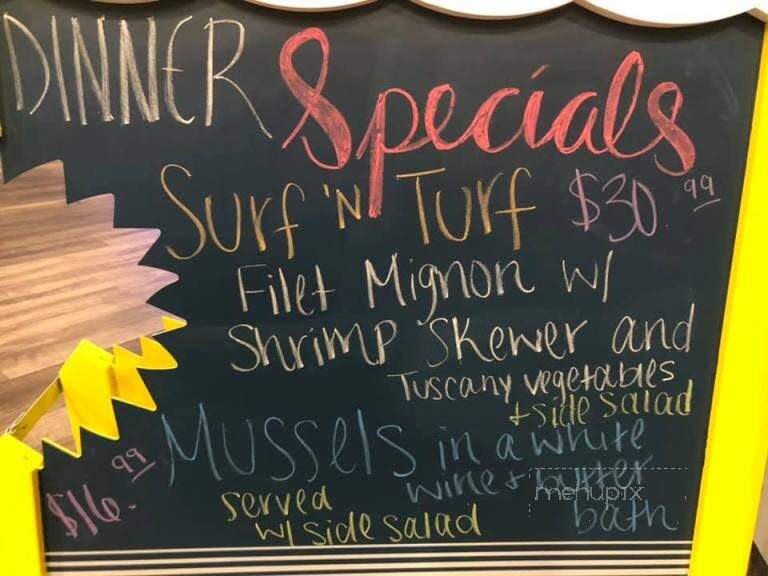 DINNER Specials
Surf 'N Turf $30.99
Filet Mignon w/
Shrimp Skewer and
Tuscany vegetables
+ side salad
Mussels in a white
wine + butter
bath
$16.99
served
w/ side salad
menupix